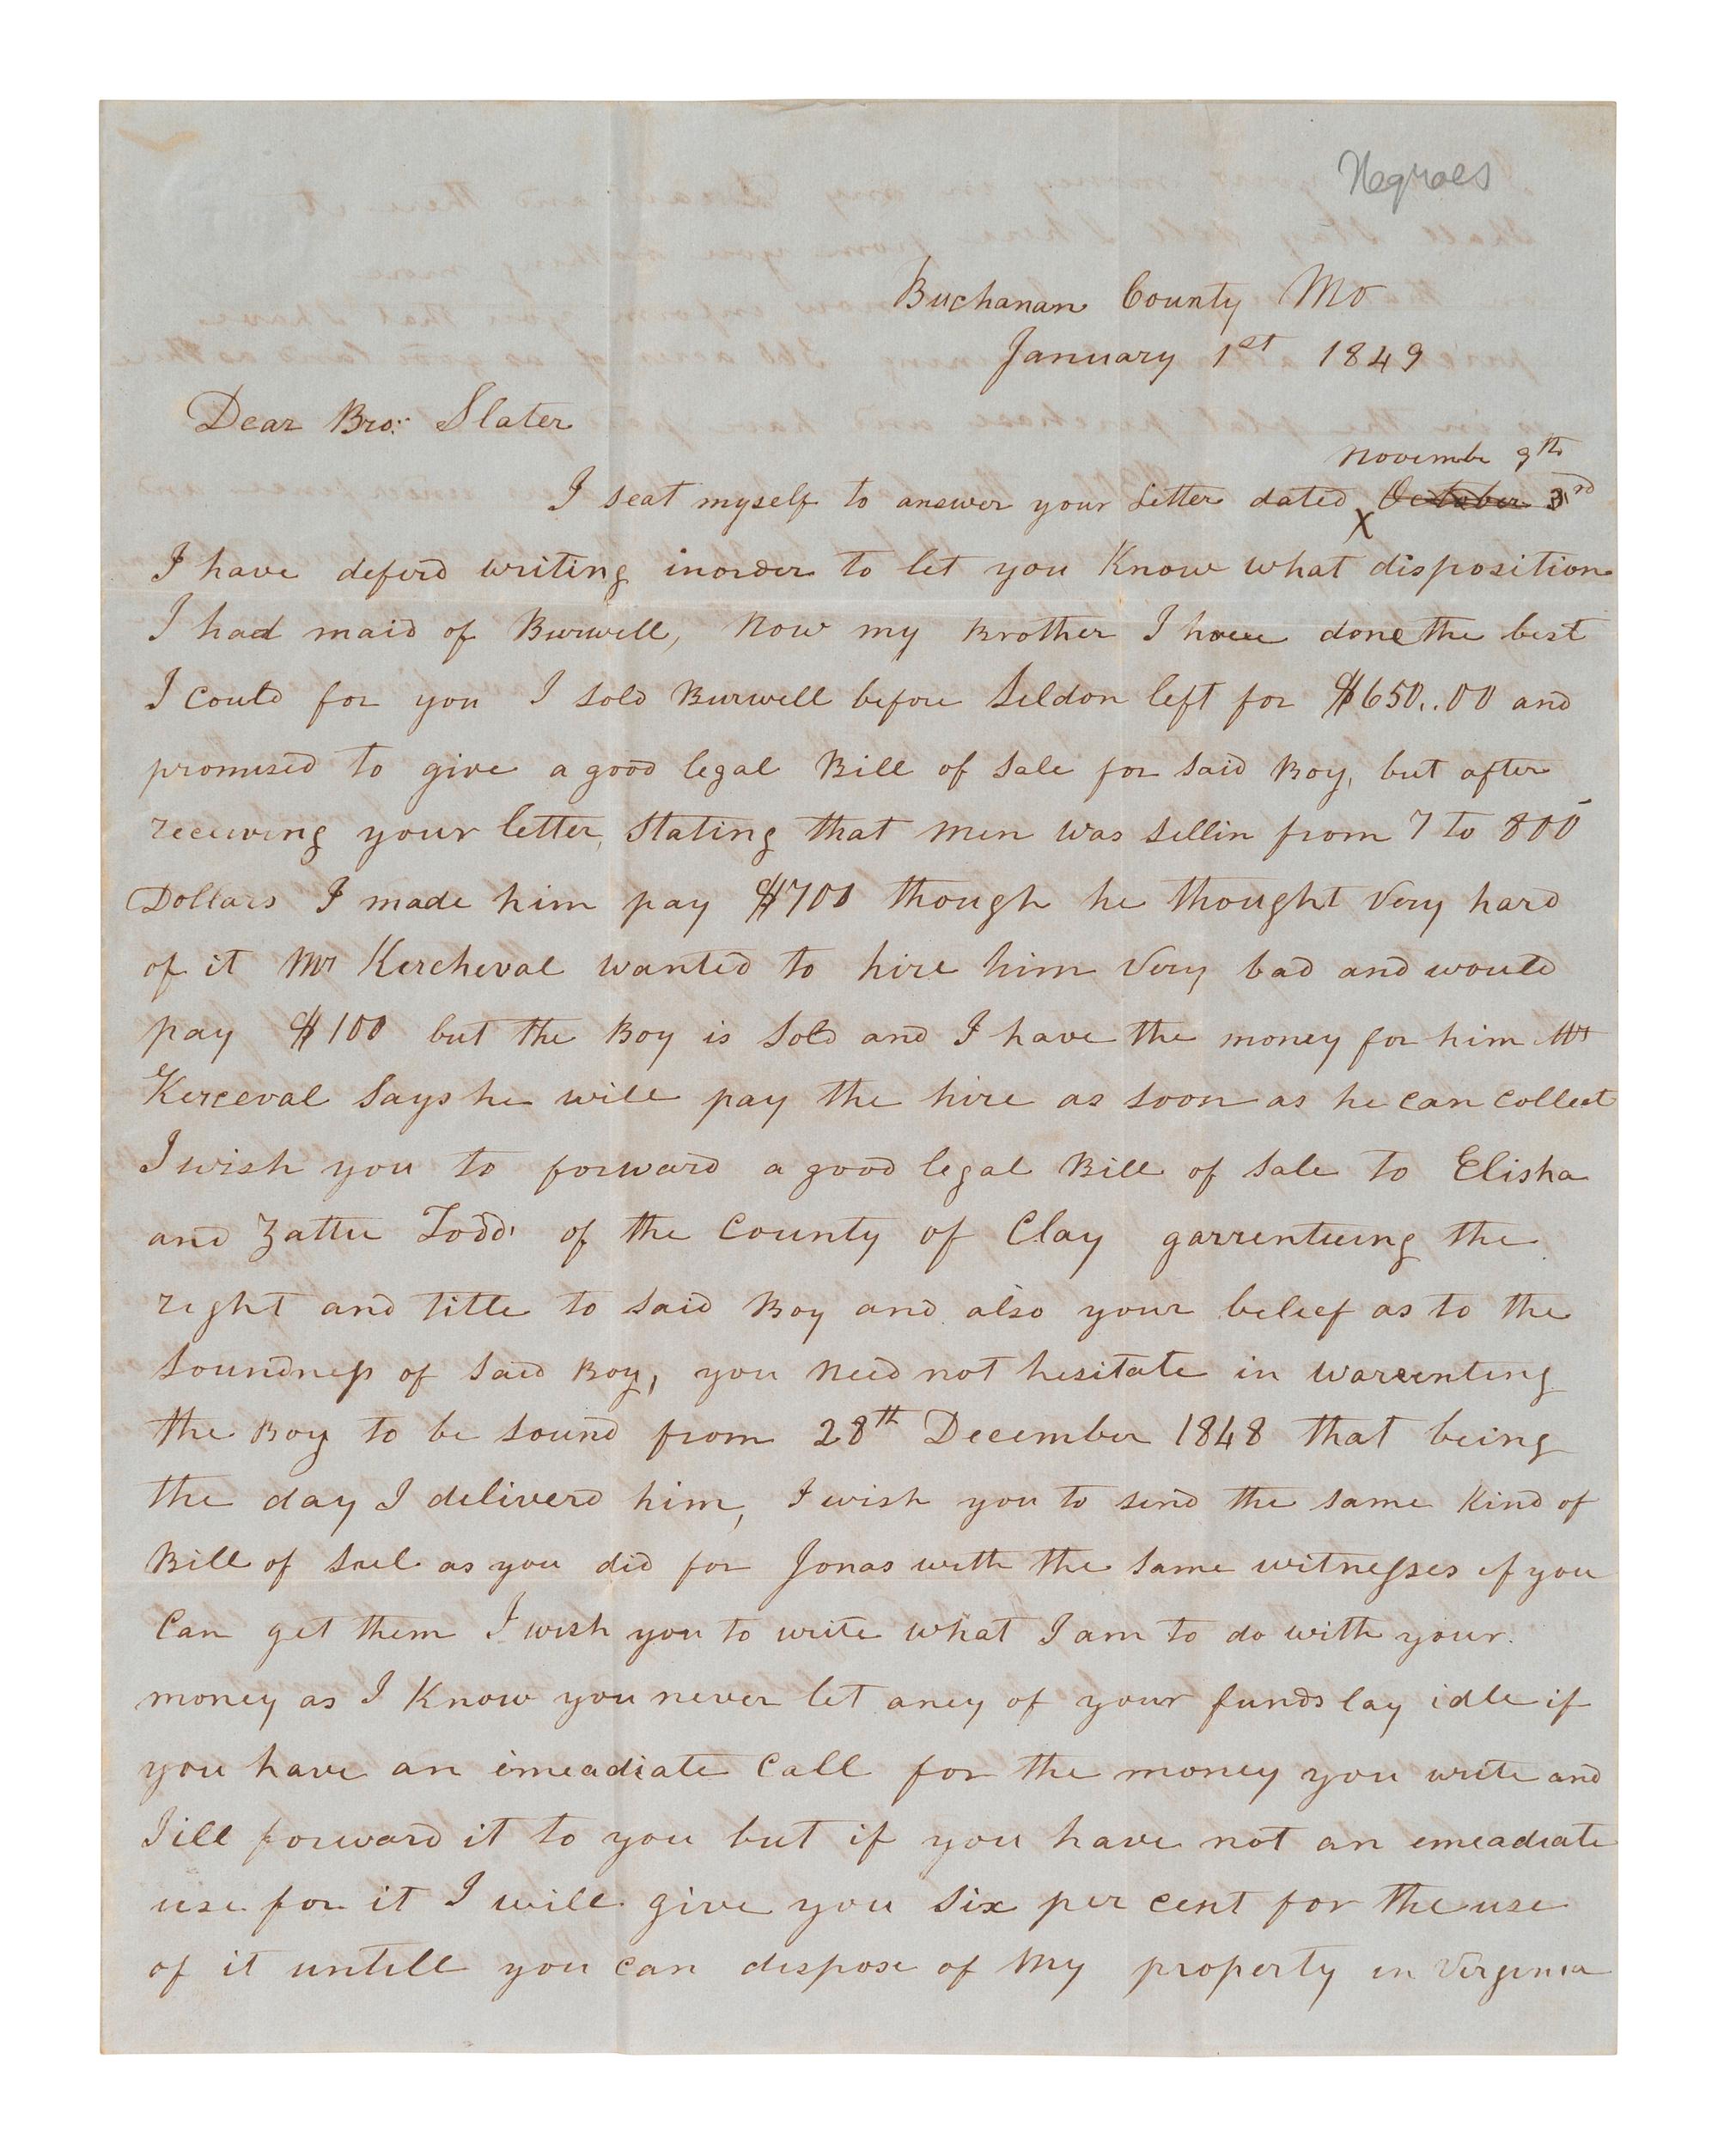 Negroes
Buchanan County Mo
January 1st 1849
Dear Bro: Slater
Novembe 9th
I seat myself to answer your Letter dated x October 3rd
I have deferd writing inorder to let you Know what disposition
I had maid of Burwell, Now my Brother I have done the best
I could for you I sold Burwell before Seldon left for $650..00 and
promised to give a good legal Bill of Sale for said Boy, but after
receiving your letter, stating that men was sellin from 7 to 800
Dollars I made him pay $700 though he thought Very hard
of it Mr Kercheval wanted to hire him Very bad and would
pay $100 but the Boy is sold and I have the money for him Mr
Kerceval Says he will pay the hire as soon as he can collect
I wish you to forward a good legal Bill of Sale to Elisha
and Zattu Todd of the County of Clay garrentueing the
right and title to said Boy and also your beleef as to the
Soundness of said Boy, you need not hesitate in warrenting
the Boy to be sound from 28th December 1848 that being
the day I deliverd him, I wish you to send the same Kind of
Bill of Sael as you did for Jonas with the same witnesses if you
Can get them I wish you to write what I am to do with your
money as I Know you never let aney of your funds lay idle if
you have an emeadiate Call for the money you write and
I ill forward it to you but if you have not an emeadiate
use for it I will give you six per cent for the use
of it untill you can dispose of My property in Virginia